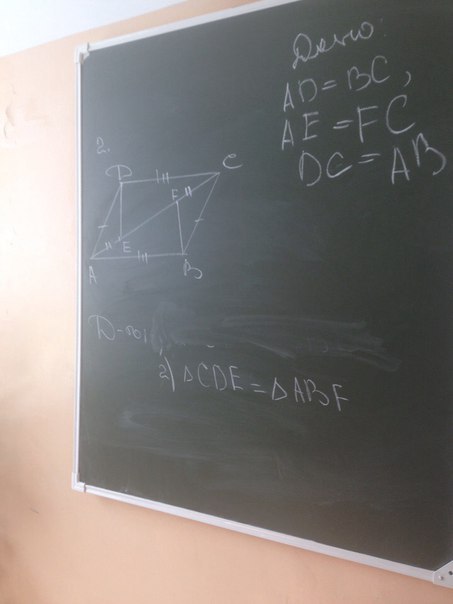 Дано:
AD = BC,
AE = FC
DC = AB
2.
D
C
F
E
A
B
Д-ть:
2) △CDE = △ABF